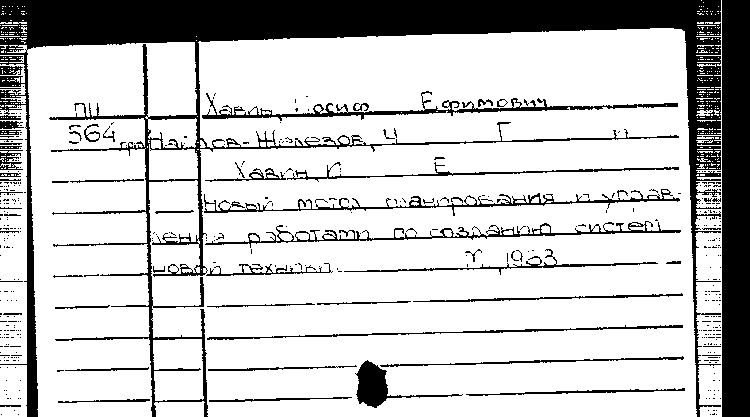 ПЧ Хавин, Иосиф Ефимович
564 Найдов-Железов, Ч Г и
Хавин, И Е
Новый метод планирования и управ-
ления работами по созданию систем
новой техники. М, 1963